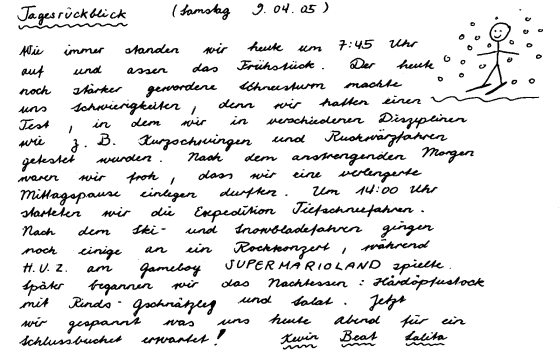 Tagesrückblick (Samstag 9.04.05)
Wie immer standen wir heute um 7:45 Uhr
auf und assen das Frühstück. Der heute
noch stärker gewordene Schneesturm machte
uns Schwierigkeiten, denn wir hatten einen
Test, in dem wir in verschiedenen Disziplinen
wie z.B. Kurzschwingen und Ruckwärzfahren
getestet wurden. Nach dem anstrengenden Morgen
waren wir froh, dass wir eine verlengerte
Mittagspause einlegen durften. Um 14:00 Uhr
starteten wir die Expedition Tiefschneefahren.
Nach dem Ski- und Snowbladefahren gingen
noch einige an ein Rockkonzert, während
H.U.Z. am Gameboy SUPERMARIOLAND spielte.
Später begannen wir das Nachtessen: Härdöpfustock
mit Rinds-Gschnätzleg und Salat. Jetzt
wir gespannt was uns heute Abend für ein
Schlussbucket erwartet! Kevin Beat Lolita